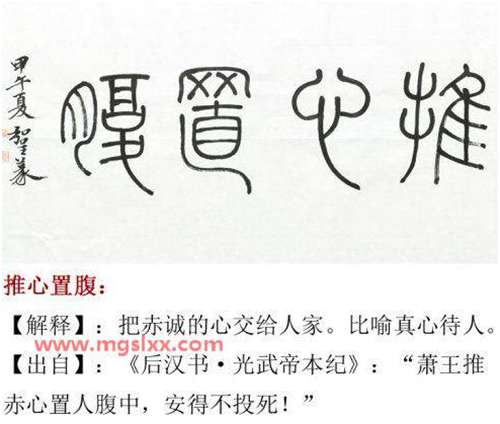 推心置腹
甲午夏
推心置腹：
【解释】：把赤诚的心交给人家。比喻真心待人。
www.mgslxx.com
【出自】：《后汉书·光武帝本纪》：“萧王推
赤心置人腹中，安得不投死！”